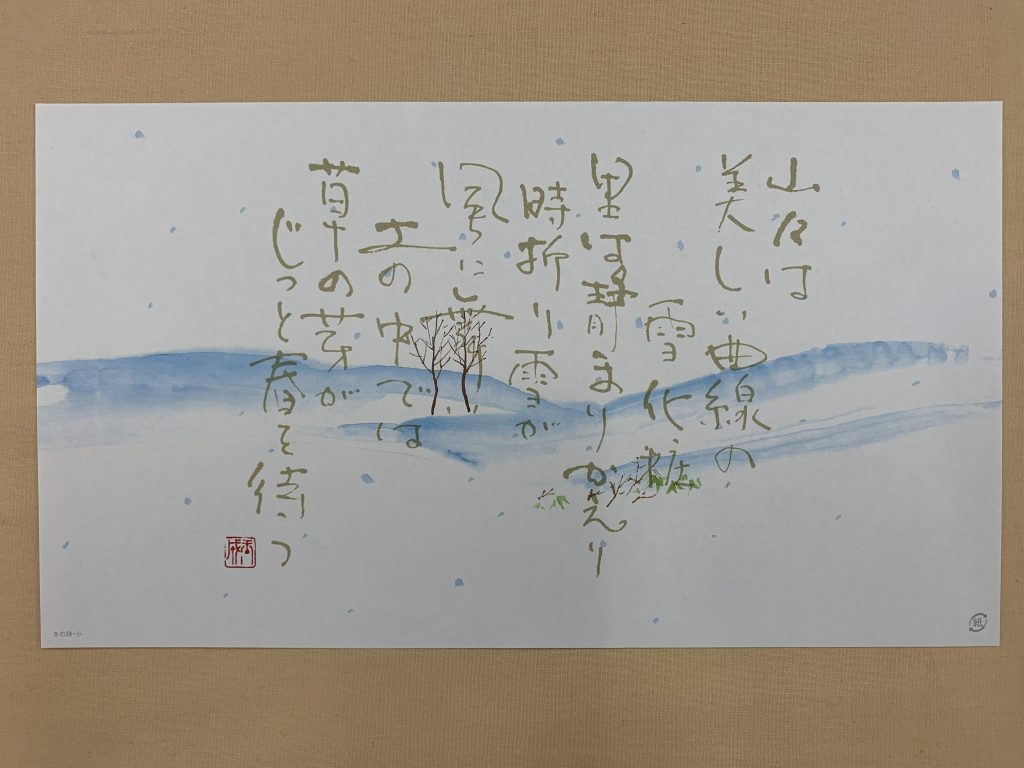 山々は
美しい曲線の
雪化粧
里は静まりかえり
時折り雪が
風に舞い
土の中では
草の芽が
じっと春を待つ
冬の詩・小
紙